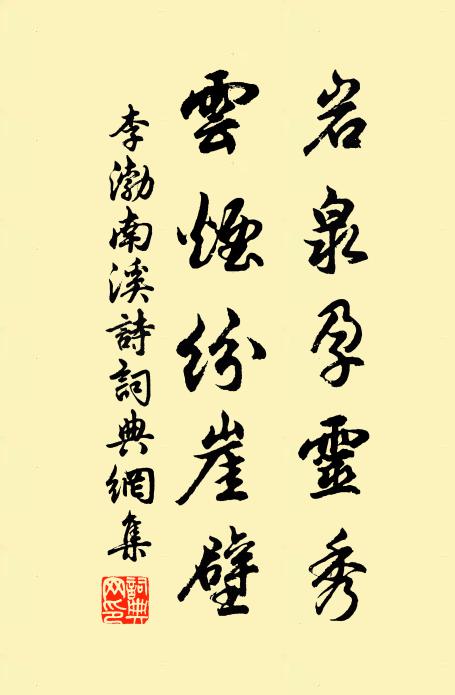 岩泉孕靈秀
雲煙紛崖壁
李渤南溪詩詞典網集
詞典网印